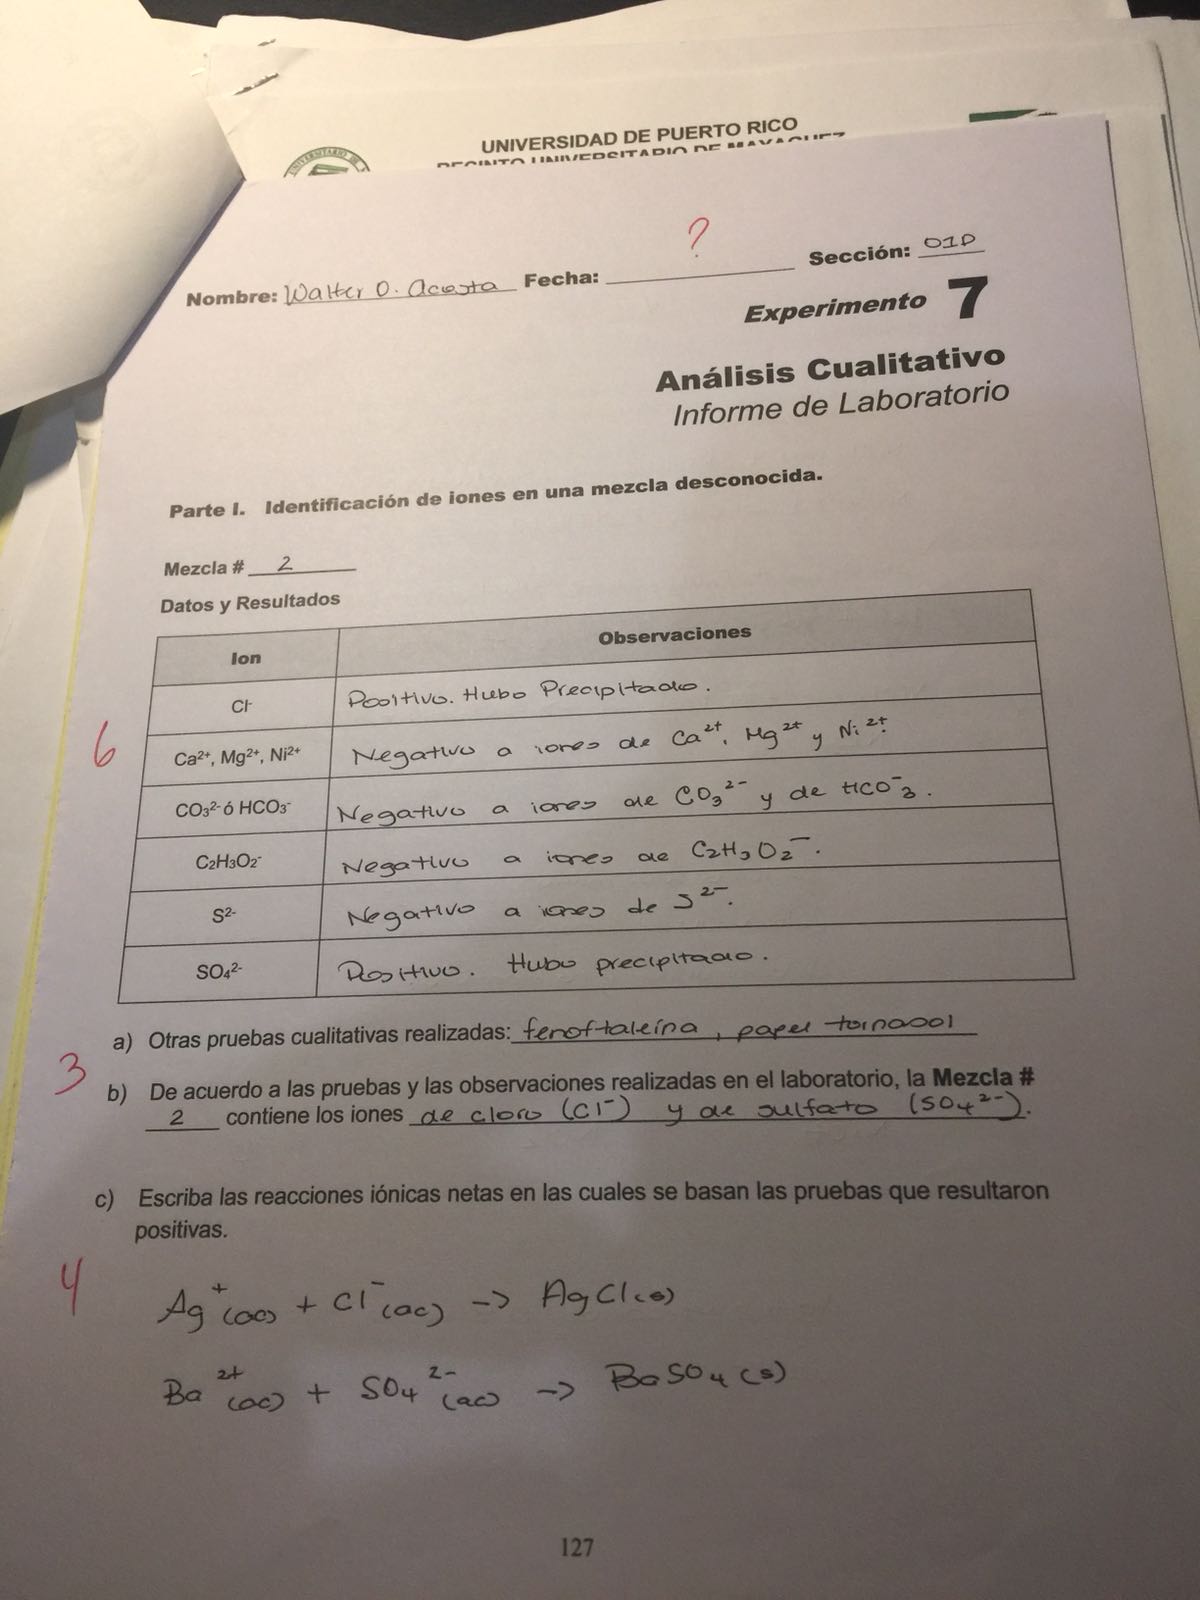 UNIVERSIDAD DE PUERTO RICO
RECINTO UNIVERSITARIO DE MAYAGUEZ
?
Nombre: Walter O. Acosta Fecha: Sección: 01D
Experimento 7
Análisis Cualitativo
Informe de Laboratorio
Parte I. Identificación de iones en una mezcla desconocida.
Mezcla # 2
Datos y Resultados
Ion Observaciones
Cl⁻ Positivo. Hubo Precipitado.
6 Ca²⁺, Mg²⁺, Ni²⁺ Negativo a iones de Ca²⁺, Mg²⁺ y Ni²⁺.
CO₃²⁻ ó HCO₃⁻ Negativo a iones de CO₃²⁻ y de HCO₃⁻.
C₂H₃O₂⁻ Negativo a iones de C₂H₃O₂⁻.
S²⁻ Negativo a iones de S²⁻.
SO₄²⁻ Positivo. Hubo precipitado.
a) Otras pruebas cualitativas realizadas: fenoftaleína, papel tornasol
3
b) De acuerdo a las pruebas y las observaciones realizadas en el laboratorio, la Mezcla #
2 contiene los iones de cloro (Cl⁻) y de sulfato (SO₄²⁻).
c) Escriba las reacciones iónicas netas en las cuales se basan las pruebas que resultaron
positivas.
4
Ag⁺(ac) + Cl⁻(ac) -> AgCl(s)
Ba²⁺(ac) + SO₄²⁻(ac) -> BaSO₄(s)
127